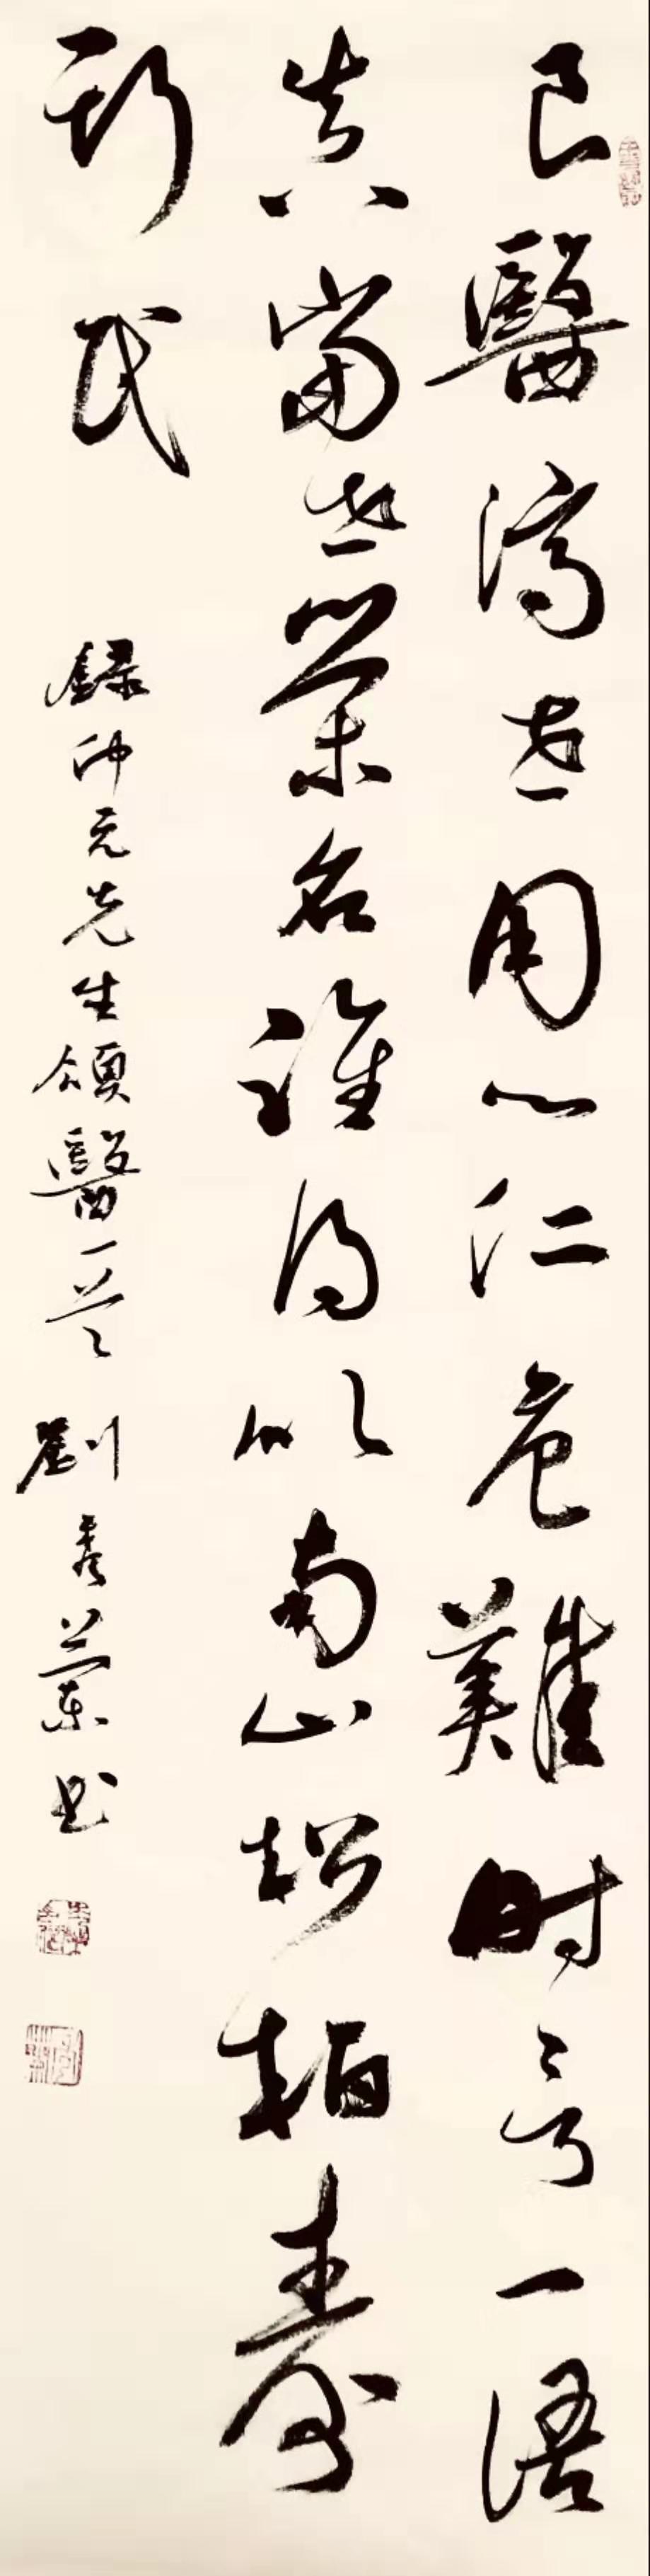 良醫濟世用心仁危難时一语
真當世榮名誰得似南山松柏壽
斯民
録仲元先生頌醫一首 劉秀蘭书